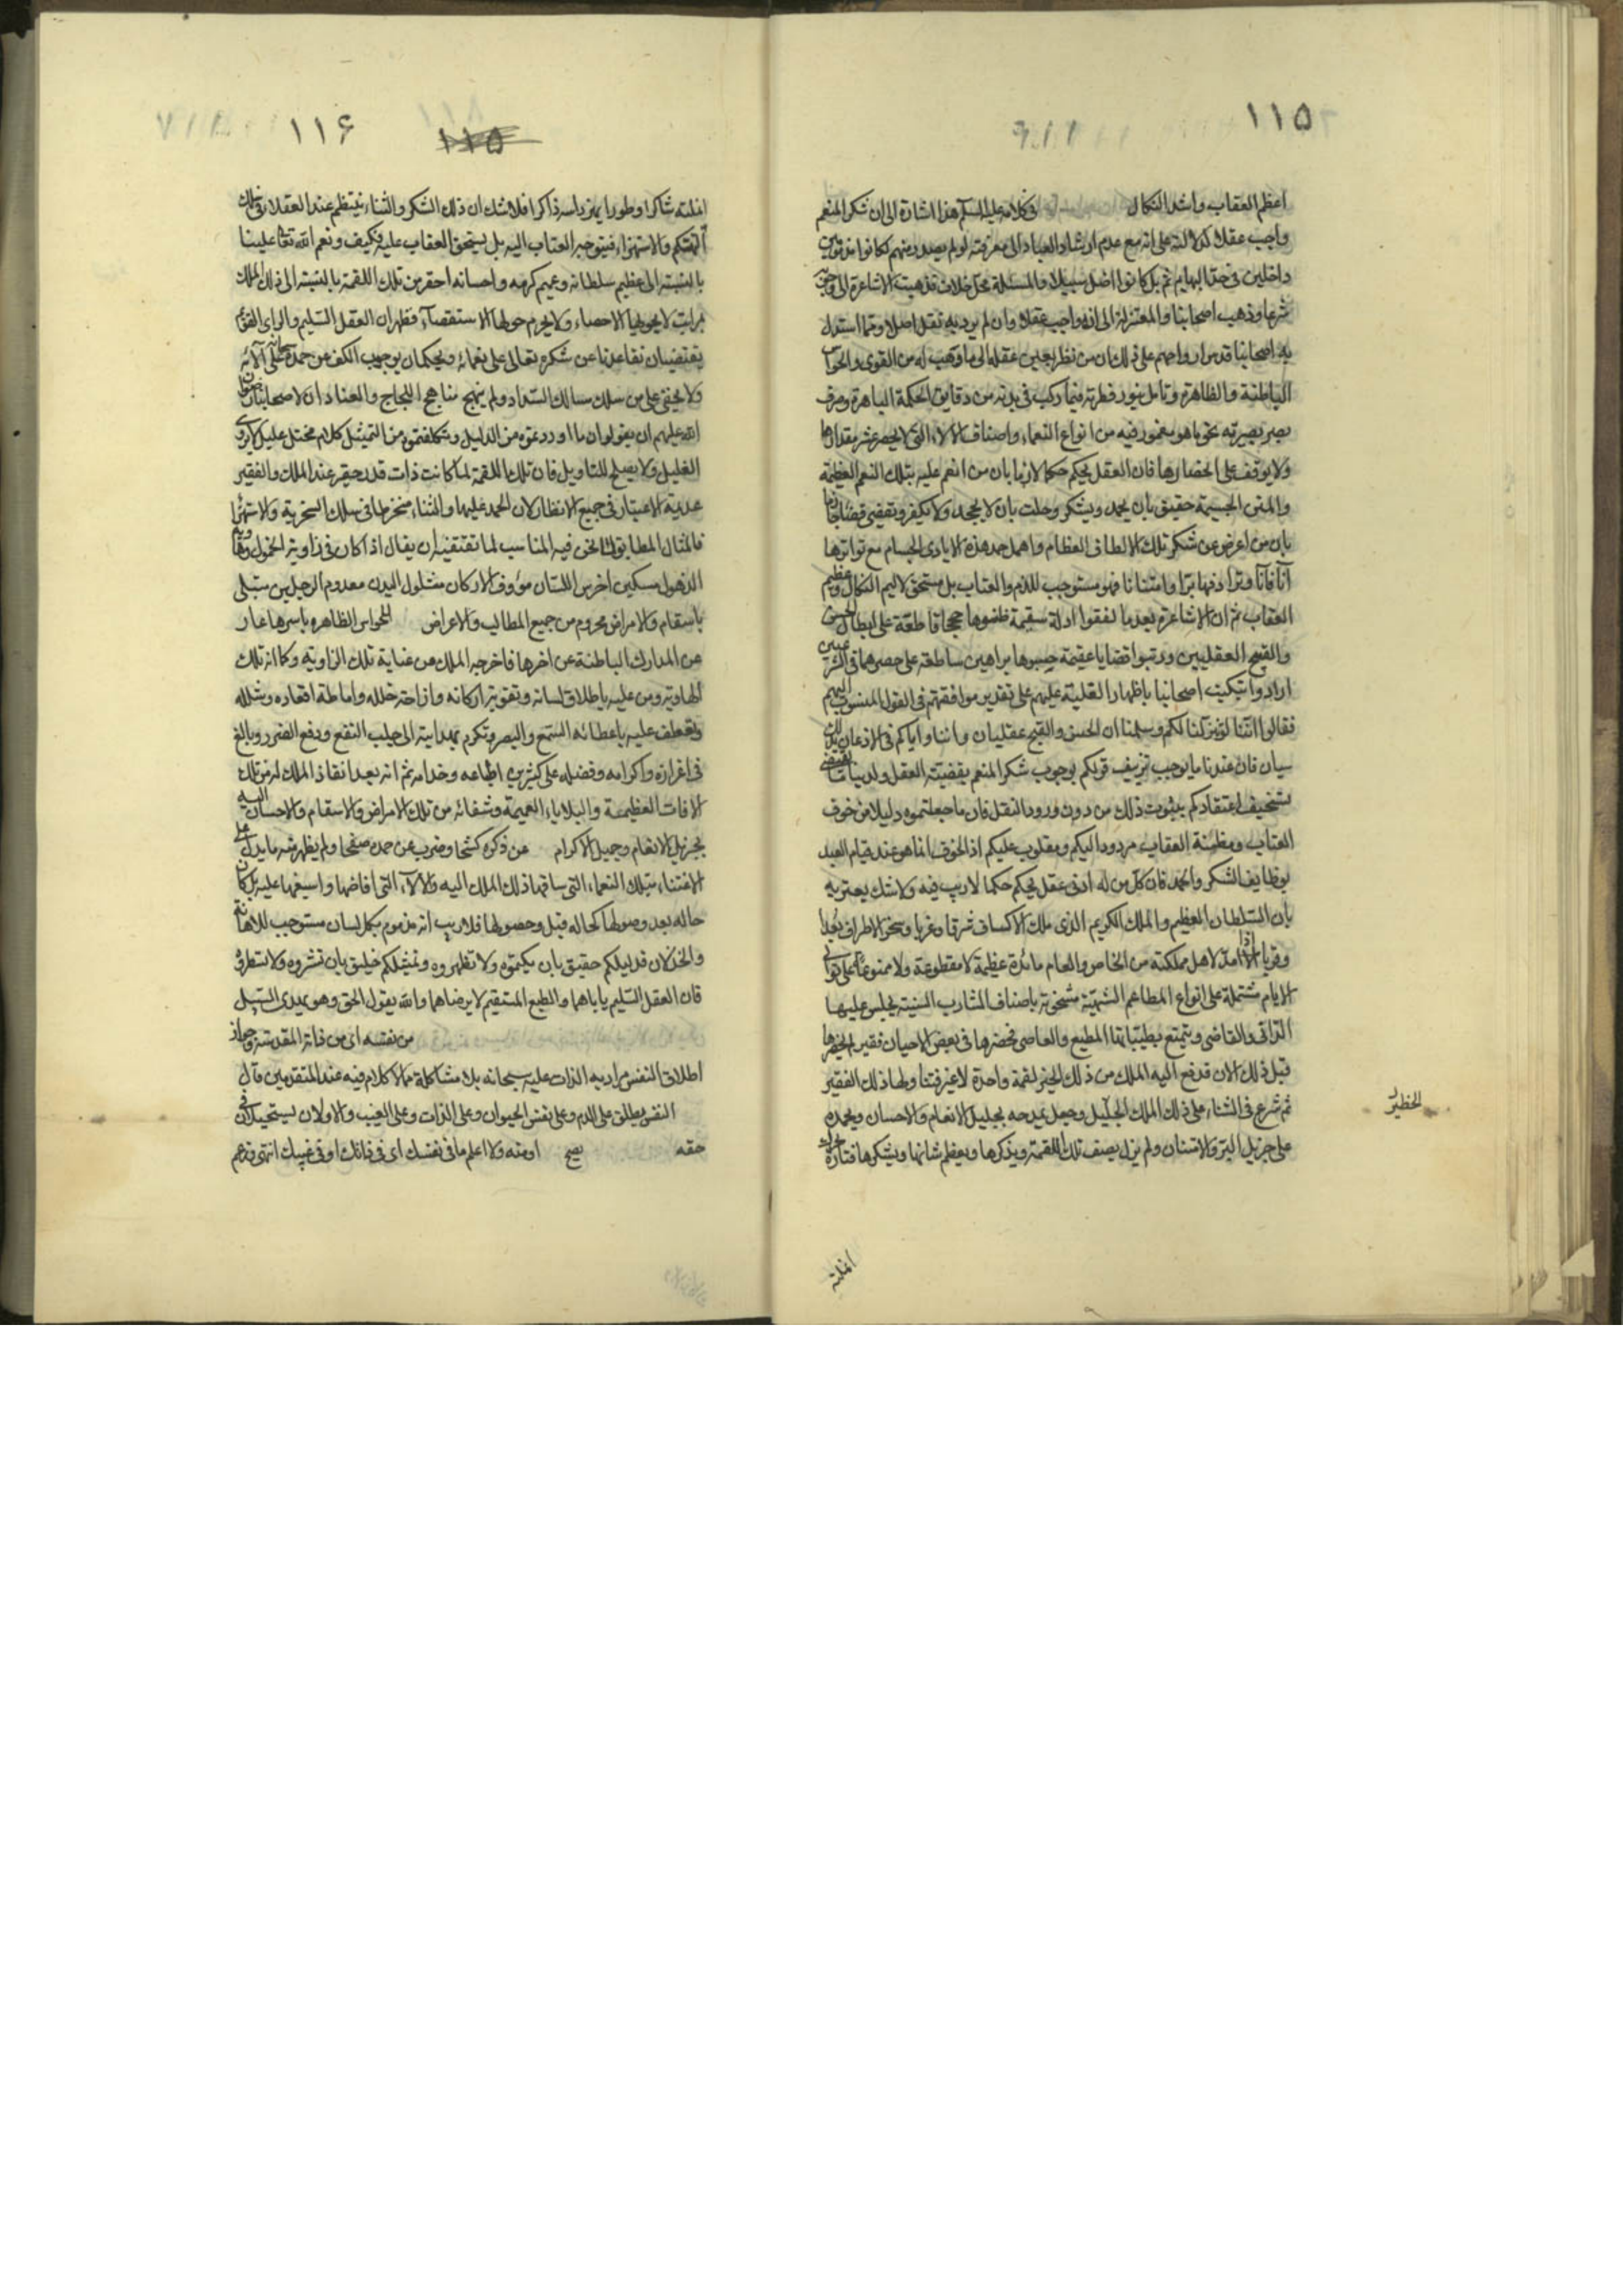 ١١٥
اعظم العقاب واشد النكال في كلامه عليه السلم هذا اشارة الى ان شكر المنعم
واجب عقلا لدلالته على انه مع عدم ارشاد العباد الى معرفته لو لم يصدر منهم لكانوا
داخلين في حد البهايم ثم بل كانوا اضل سبيلا والمسئلة محل خلاف فذهبت الاشاعرة الى وجوبه
شرعا وذهب اصحابنا والمعتزلة الى انه واجب عقلا وان لم يرد به نقل اصلا ومما استدل
به اصحابنا قدس ارواحهم على ذلك ان من نظر بعين عقله الى ما وهب له من القوى والحواس
الباطنة والظاهرة وتامل بنور فطرته فيما ركب في بدنه من دقايق الحكمة الباهرة وصرف
بصر بصيرته نحو ما هو مغمور فيه من انواع النعماء واصناف الالاء التي لا يحصر عشر مقدارها
ولا يوقف على انحصارها فان العقل يحكم حكما لازما بان من انعم عليه بتلك النعم العظيمة
والمنن الجسيمة حقيق بان يحمد ويشكر وخليق بان لا يجحد ولا يكفر ويقضي قضاء جازما
بان من اعرض عن شكر تلك الالطاف العظام واهمل حمد هذه الايادى الجسام مع تواترها
آنا فآنا وترادفها برا وامتنانا فهو مستوجب للذم والعتاب بل مستحق لاليم النكال وعظيم
العقاب ثم ان الاشاعرة بعد ما لفقوا ادلة سقيمة ظنوها حججا قاطعة على ابطال الحسن
والقبح العقليين ورتبوا قضايا عقيمة حسبوها براهين ساطعة على حصرهما في الشرعيين
ارادوا تبكيت اصحابنا باظهار الغلبة عليهم على تقدير موافقتهم في القول المنسوب اليهم
فقالوا اننا لو تنزلنا لكم وسلمنا ان الحسن والقبح عقليان واننا واياكم في الاذعان بذلك
سيان فان عندنا ما يوجب تزييف قولكم بوجوب شكر المنعم بقضية العقل ولدينا ما يقتضى
تسخيف اعتقادكم بثبوت ذلك من دون ورود النقل فان ما جعلتموه دليلا من خوف
العتاب ومظنة العقاب مردود اليكم ومقلوب عليكم اذ الخوف انما هو عند قيام العبد
بوظايف الشكر والحمد فان كل من له ادنى عقل يحكم حكما لا ريب فيه ولا شك يعتريه
بان السلطان العظيم والملك الكريم الذى ملك الاكناف شرقا وغربا وسخر الاطراف بعدا
وقربا اذا مد لاهل مملكته من الخاص والعام مائدة عظيمة لا مقطوعة ولا ممنوعة على توالى
الايام مشتملة على انواع المطاعم الشهية مشحونة باصناف المشارب السنية يجلس عليها
الدانى والقاصى ويتمتع بطيباتها المطيع والعاصى فحضرها في بعض الاحيان فقير لم يحضرها
قبل ذلك الان فدفع اليه الملك من ذلك الخبز لقمة واحدة لا غير فتناولها ذلك الفقير
ثم شرع في الثناء على ذلك الملك الجليل وجعل يمدحه بجليل الانعام والاحسان ويحمده
على جزيل البر والامتنان ولم يزل يصف تلك اللقمة ويذكرها ويعظم شانها ويشكرها فتارة يحرك
الخطير
انملته
١١٦
١١٥
انملته شاكرا وطورا يهز راسه ذاكرا فلا شك ان ذلك الشكر والثناء ينتظم عند العقلاء في سلك
التهكم والاستهزاء فيتوجه العتاب اليه بل يستحق العقاب عليه فكيف ونعم الله تعالى علينا
بالنسبة الى عظيم سلطانه وعميم كرمه واحسانه احقر من تلك اللقمة بالنسبة الى ذلك الملك
بمراتب لا يحويها الاحصاء ولا يحوم حولها الاستقصاء فظهر ان العقل السليم والراى القويم
يقتضيان تقاعدنا عن شكره تعالى على نعمائه ويحكمان بوجوب الكف عن حمده سبحانه على آلائه
ولا يخفى على من سلك مسالك السداد ولم ينهج مناهج اللجاج والعناد ان لاصحابنا رضوان
الله عليهم ان يقولوا ان ما اوردتموه من الدليل وتكلفتموه من التمثيل كلام مختل عليل لا يروى
الغليل ولا يصلح للتاويل فان تلك اللقمة لما كانت ذات قدر حقير عند الملك والفقير
عديمة الاعتبار في جميع الانظار لان الحمد عليها والثناء منخرطا في سلك السخرية والاستهزاء
فالمثال المطابق لما نحن فيه المناسب لما نقتفيه ان يقال اذا كان في زاوية الخمول وهاوية
الذهول مسكين اخرس اللسان مؤوف الاركان مشلول اليدين معدوم الرجلين مبتلى
باسقام والامراض محروم من جميع المطالب والاعراض الحواس الظاهرة باسرها عار
عن المدارك الباطنة عن اخرها فاخرجه الملك من غيابة تلك الزاوية وكآبة تلك
الهاوية ومن عليه باطلاق لسانه وتقوية اركانه وازاحة خلله واماطة اقعاده وشلله
وتعطف عليه باعطائه السمع والبصر وتكرم بهدايته الى جلب النفع ودفع الضرر وبالغ
في اعزازه واكرامه وفضله على كثير من اتباعه وخدامه ثم انه بعد انقاذ الملك له من تلك
الافات العظيمة والبلاياء العميمة وشفائه من تلك الامراض والاسقام والاحسان اليه
بجزيل الانعام وجميل الاكرام عن ذكره كشحا وضرب عن حمده صفحا ولم يظهر منه ما يدل على
الاعتناء بتلك النعماء التي ساقها ذلك الملك اليه والالاء التي افاضها واسبغها عليه بل كان
حاله بعد وصولها كحاله قبل حصولها فلا ريب انه مذموم بكل لسان مستوجب للاهانة
والخذلان فدليلكم حقيق بان يكتموه ولا تظهروه وتمثيلكم خليق بان تستروه ولا تسطروه
فان العقل السليم ياباهما والطبع المستقيم لا يرضاهما والله يقول الحق وهو يهدى السبيل
من نفسه اى من ذاته المقدسة وجواز
اطلاق النفس مرادا به الذات عليه سبحانه بلا مشاكلة مما لا كلام فيه عند المتقدمين قال
النفس يطلق على الدم وعلى نفس الحيوان وعلى الذات وعلى الغيب والاولان يستحيلان في
حقه يصح او منه ولا اعلم ما في نفسك اى في ذاتك او في غيبك انتهى